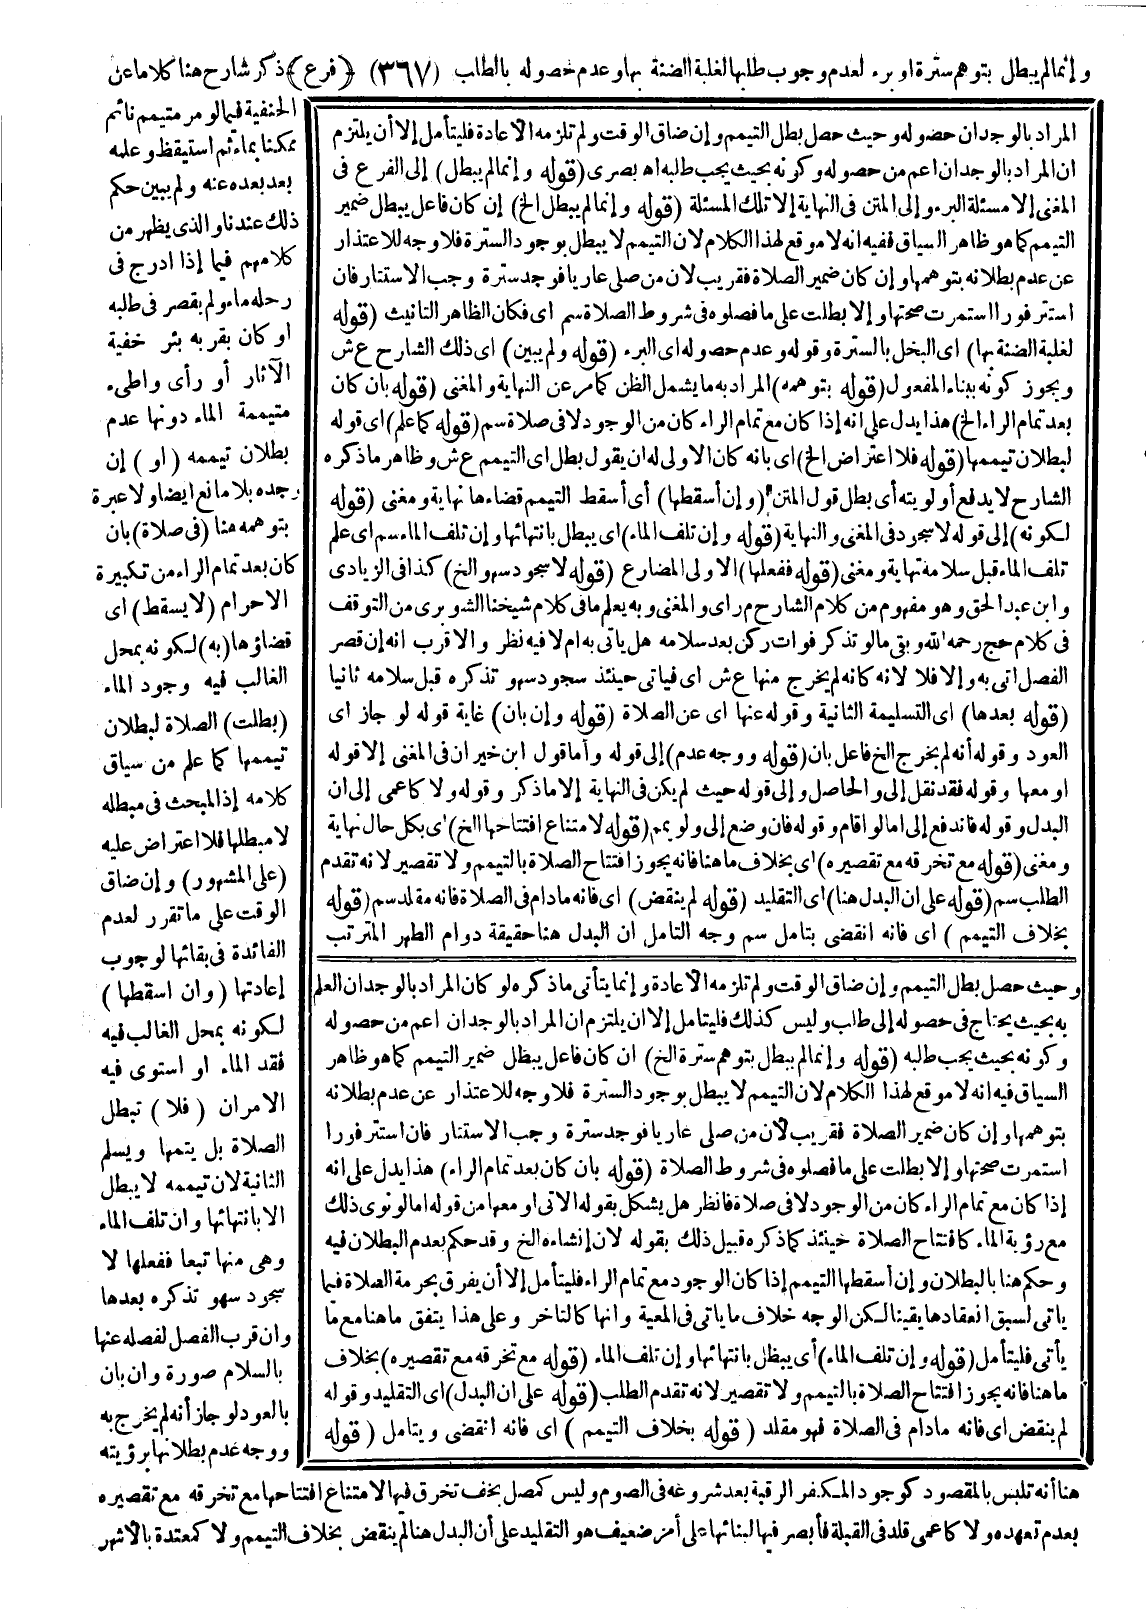 وإنما لم يبطل بتوهم سترة أو برء لعدم وجوب طلبها لغلبة الضنة بها وعدم حصوله بالطلب (٣٦٧) (فرع) ذكر شارح هنا كلاما عن
الحنفية فيما لو مر متيمم نائم
ممكنا بماء ثم استيقظ وعلمه
بعد بعده عنه ولم يبين حكم
ذلك عندنا والذى يظهر من
كلامهم فيما إذا ادرج فى
رحله ماء ولم يقصر فى طلبه
او كان بقربه بئر خفية
الآثار أو رأى واطىء
متيممة الماء دونها عدم
بطلان تيممه (او) إن
وجده بلا مانع ايضا ولا عبرة
بتوهمه هنا (فى صلاة) بان
كان بعد تمام الراء من تكبيرة
الاحرام (لا يسقط) اى
قضاؤها (به) لكونه بمحل
الغالب فيه وجود الماء
(بطلت) الصلاة لبطلان
تيممها كما علم من سياق
كلامه إذ المبحث فى مبطله
لا مبطلها فلا اعتراض عليه
(على المشهور) وإن ضاق
الوقت على ما تقرر لعدم
الفائدة فى بقائها لوجوب
إعادتها (وان اسقطها)
لكونه بمحل الغالب فيه
فقد الماء او استوى فيه
الامران (فلا) تبطل
الصلاة بل يتمها ويسلم
الثانية لان تيممه لا يبطل
الا بانتهائها وان تلف الماء
وهى منها تبعا ففعلها لا
سجود سهو تذكره بعدها
وان قرب الفصل لفصله عنها
بالسلام صورة وان بان
بالعود لو جاز أنه لم يخرج به
ووجه عدم بطلانها برؤيته
هنا أنه تلبس بالمقصود كوجود المكفر الرقبة بعد شروعه فى الصوم وليس كمصل بخف تخرق فيها لامتناع افتتاحها مع تخرقه مع تقصيره
بعدم تعهده ولا كاعمى قلد فى القبلة فأبصر فيها لبنائها على أمر ضعيف هو التقليد على أن البدل هنا لم ينقض بخلاف التيمم ولا كمعتدة بالأشهر
المراد بالوجدان حضوله وحيث حصل بطل التيمم وإن ضاق الوقت ولم تلزمه الاعادة فليتأمل إلا أن يلتزم
ان المراد بالوجدان اعم من حصوله وكونه بحيث يجب طلبه اه بصرى (قوله وإنما لم يبطل) إلى الفرع فى
المغنى إلا مسئلة البرء وإلى المتن فى النهاية إلا تلك المسئلة (قوله وإنما لم يبطل الخ) إن كان فاعل يبطل ضمير
التيمم كما هو ظاهر السياق ففيه انه لا موقع لهذا الكلام لان التيمم لا يبطل بوجود السترة فلا وجه للاعتذار
عن عدم بطلانه بتوهمها وإن كان ضمير الصلاة فقريب لان من صلى عاريا فوجد سترة وجب الاستتار فان
استتر فورا استمرت صحتها وإلا بطلت على ما فصلوه فى شروط الصلاة سم اى فكان الظاهر التانيث (قوله
لغلبة الضنة بها) اى البخل بالسترة وقوله وعدم حصوله اى البرء (قوله ولم يبين) اى ذلك الشارح ع ش
ويجوز كونه ببناء المفعول (قوله بتوهمه) المراد به ما يشمل الظن كما مر عن النهاية والمغنى (قوله بان كان
بعد تمام الراء الخ) هذا يدل على انه إذا كان مع تمام الراء كان من الوجود لا فى صلاة سم (قوله كما علم) اى قوله
لبطلان تيممها (قوله فلا اعتراض الخ) اى بانه كان الاولى له ان يقول بطل اى التيمم ع ش وظاهر ما ذكره
الشارح لا يدفع أولويته أى بطل قول المتن (وإن أسقطها) أى أسقط التيمم قضاءها نهاية ومغنى (قوله
لكونه) إلى قوله لا سجود فى المغنى والنهاية (قوله وإن تلف الماء) اى يبطل بانتهائها وإن تلف الماء سم اى علم
تلف الماء قبل سلامه نهاية ومغنى (قوله ففعلها) الاولى المضارع (قوله لا سجود سهو الخ) كذا فى الزيادى
وابن عبد الحق وهو مفهوم من كلام الشارح م ر اى والمغنى وبه يعلم ما فى كلام شيخنا الشوبرى من التوقف
فى كلام حج رحمه الله وبقى مالو تذكر فوات ركن بعد سلامه هل ياتى به ام لا فيه نظر والاقرب انه إن قصر
الفصل اتى به وإلا فلا لانه كانه لم يخرج منها ع ش اى فياتى حينئذ سجود سهو تذكره قبل سلامه ثانيا
(قوله بعدها) اى التسليمة الثانية وقوله عنها اى عن الصلاة (قوله وإن بان) غاية قوله لو جاز اى
العود وقوله أنه لم يخرج الخ فاعل بان (قوله ووجه عدم) إلى قوله وأما قول ابن خيران فى المغنى إلا قوله
او معها وقوله فقد نقل إلى والحاصل وإلى قوله حيث لم يكن فى النهاية إلا ما ذكر وقوله ولا كاعمى إلى ان
البدل وقوله فاندفع إلى اما لو اقام وقوله فان وضع إلى ولو يمم (قوله لامتناع افتتاحها الخ) اى بكل حال نهاية
ومغنى (قوله مع تخرقه مع تقصيره) اى بخلاف ما هنا فانه يجوز افتتاح الصلاة بالتيمم ولا تقصير لانه تقدم
الطلب سم (قوله على ان البدل هنا) اى التقليد (قوله لم ينقض) اى فانه مادام فى الصلاة فانه مقلد سم (قوله
بخلاف التيمم) اى فانه انقضى بتامل سم وجه التامل ان البدل هنا حقيقة دوام الطهر المترتب
وحيث حصل بطل التيمم وإن ضاق الوقت ولم تلزمه الاعادة وإنما يتأتى ما ذكره لو كان المراد بالوجدان العلم
به بحيث يحتاج فى حصوله إلى طلب وليس كذلك فليتامل إلا ان يلتزم ان المراد بالوجدان اعم من حصوله
وكونه بحيث يجب طلبه (قوله وإنما لم يبطل بتوهم سترة الخ) ان كان فاعل يبطل ضمير التيمم كما هو ظاهر
السياق فيه انه لا موقع لهذا الكلام لان التيمم لا يبطل بوجود السترة فلا وجه للاعتذار عن عدم بطلانه
بتوهمها وإن كان ضمير الصلاة فقريب لان من صلى عاريا فوجد سترة وجب الاستتار فان استتر فورا
استمرت صحتها وإلا بطلت على ما فصلوه فى شروط الصلاة (قوله بان كان بعد تمام الراء) هذا يدل على انه
إذا كان مع تمام الراء كان من الوجود لا فى صلاة فانظر هل يشكل بقوله الاتى او معها من قوله اما لو نوى ذلك
مع رؤية الماء كافتتاح الصلاة حينئذ كما ذكره قبيل ذلك بقوله لان إنشاءه الخ وقد حكم بعدم البطلان فيه
وحكم هنا بالبطلان وإن أسقطها التيمم إذا كان الوجود مع تمام الراء فليتأمل إلا أن يفرق بحرمة الصلاة فيما
ياتى لسبق انعقادها يقينا لكن الوجه خلاف ما ياتى فى المعية وانها كالتاخر وعلى هذا يتفق ما هنا مع ما
يأتى فليتأمل (قوله وإن تلف الماء) أى يبطل بانتهائها وإن تلف الماء (قوله مع تخرقه مع تقصيره) بخلاف
ما هنا فانه يجوز افتتاح الصلاة بالتيمم ولا تقصير لانه تقدم الطلب (قوله على ان البدل) اى التقليد وقوله
لم ينقض اى فانه مادام فى الصلاة فهو مقلد (قوله بخلاف التيمم) اى فانه انقضى ويتامل (قوله